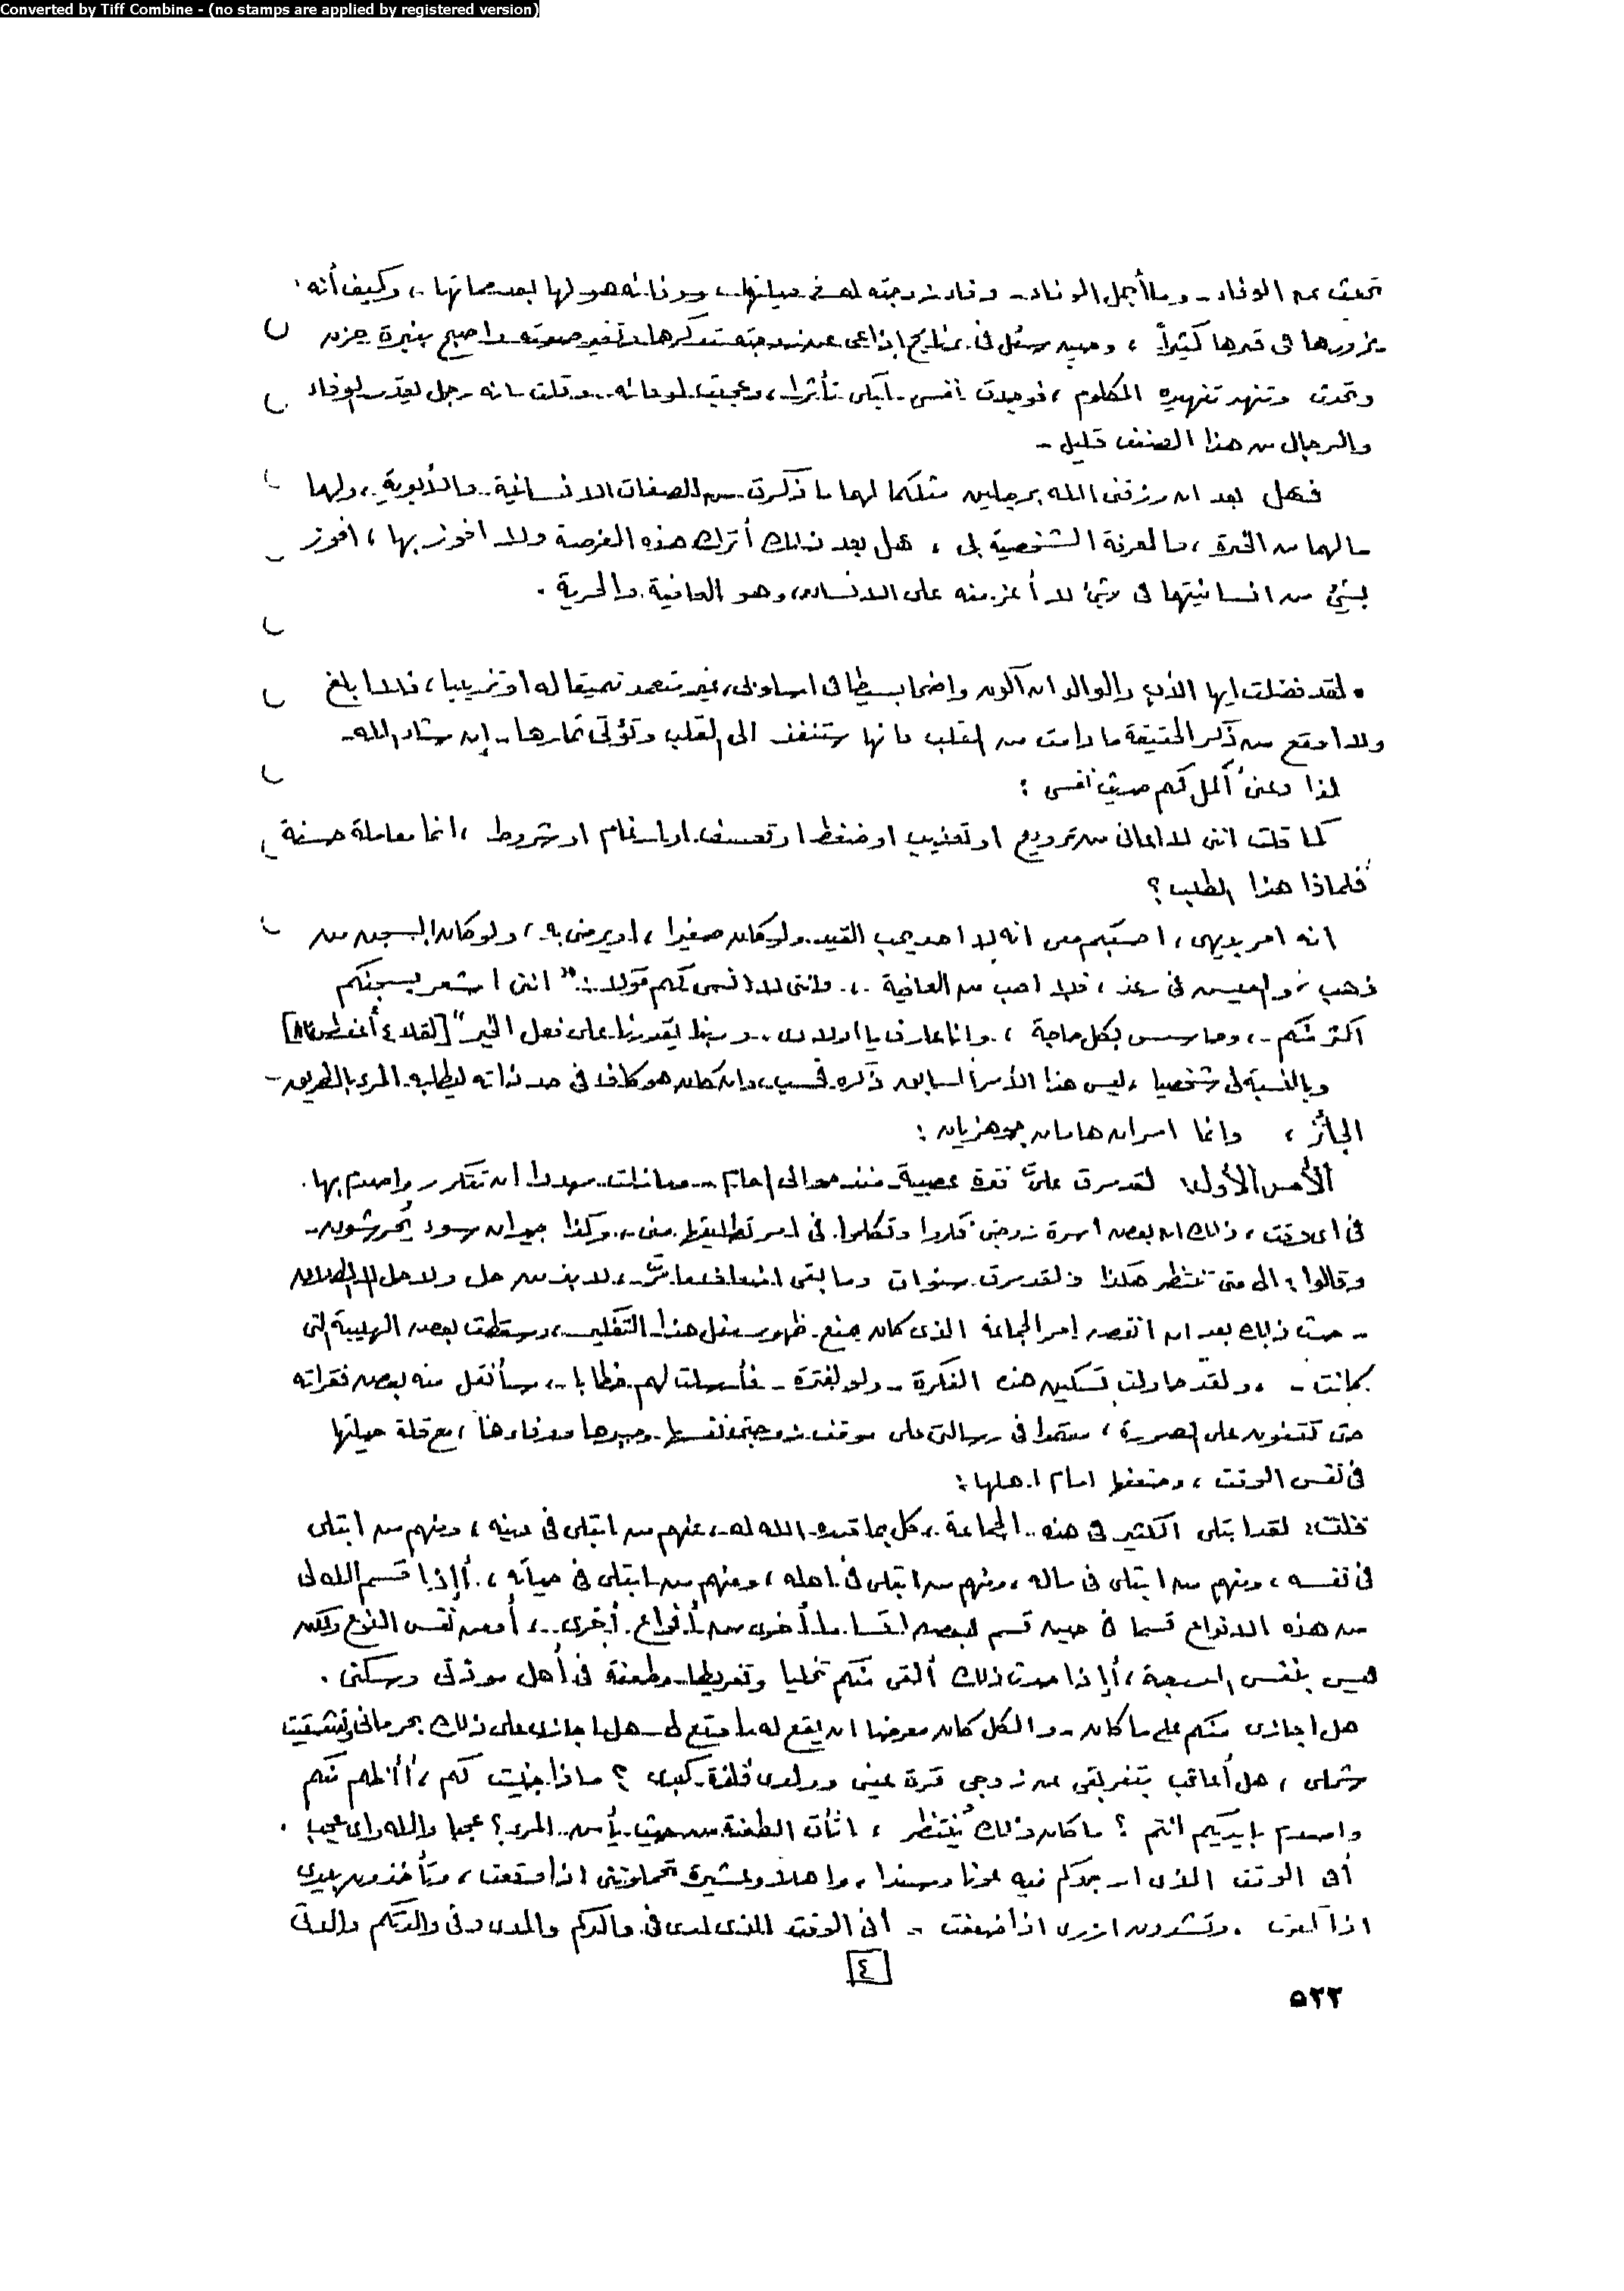 Converted by Tiff Combine - (no stamps are applied by registered version)
تحدث عن الوفاء - وما أجمل الوفاء - وفاء زوجته له في حياتها، ووفائه هو لها بعد مماتها، وكيف أنه
يزورها في قبرها كثيراً، وحين سئل في برنامج إذاعي عن زوجته تذكرها وتغير صوته واصبح بنبرة حزن
وتحدث وتنهد تنهيده المكلوم، فوجدت نفسي أبكي تأثرا، وعجبت لوفائه وقلت انه رجل يقدر الوفاء
والرجال من هذا الصنف قليل -
فهل بعد ان رزقني الله برجلين مثلكما لهما ما ذكرت من الصفات الانسانية والأبوية، ولهما
ما لهما من الخبرة، والمعرفة الشخصية بي، هل بعد ذلك أترك هذه الفرصة ولا افوز بها، افوز
بشئ من انسانيتهما في شئ لا أعز منه على الانسان، وهو العافية والحرية.
• لقد فضلت ايها الأخ والوالد ان أكون واضحا بسيطا في اسلوبي، غير متعمد تنميقا له او تزيينا، فلا ابلغ
ولا اوقع من ذكر الحقيقة ما دامت من القلب فانها ستنفذ الى القلب وتؤتى ثمارها - إن شاء الله -
لذا دعني أكمل لكم حديث نفسي:
كما قلت انني لا اعاني من ترويع او تعذيب او ضغط او تعسف او ارغام او شروط، انما معاملة حسنة
فلماذا هذا الطلب؟
انه امر بديهي، احسبكم معي انه لا احد يحب القيد ولو كان صغيرا، او يرضى به، ولو كان السجن من
ذهب، والعيش في رغد، فلا احب من العافية .. وانني لا انسى لكم قولا: "انني اشعر بسجنكم
أكثر منكم، وحاسس بكل حاجة، وانا عارف يا اولادى، وربنا يقدرنا على فعل الخير" [لقاء ٤ أغسطس]
وبالنسبة لي شخصيا، ليس هذا الأمر السابق ذكره فحسب، وان كان هو كاف في حد ذاته ليطلبه المرء بالطريق
الجائز، وانما امران هامان جوهريان:
الأمر الأول: لقد مرت عليّ فترة عصبية منذ حوالى اعوام - وما زلت مهددا ان تتكرر واصدم بها
في اى وقت، ذلك ان بعض اسرة زوجتي فكروا وتكلموا في امر تطليقها مني، وكذا جيران سوء يحرشون
وقالوا: الى متى تنتظر هكذا ولقد مرت سنوات وما بقى اضعاف ما مرّ، لابد من حل ولا حل الا الطلاق
- حدث ذلك بعد ان انفض امر الجماعة الذى كان يمنع ظهور مثل هذا التفكير، وسقطت بعض الهيبة التى
كانت -. ولقد حاولت تسكين هذه الفكرة - ولو لفترة - فأرسلت لهم خطابا، سأنقل منه بعض فقراته
حتى تقفون على الصورة، معتمدا في رسالتي على موقف زوجتي نفسها وصبرها ووفاءها، مع قلة حيلتها
في نفس الوقت، وضعفها امام اهلها:
فقلت: لقد ابتلى الكثير في هذه الجماعة، كل بما قدره الله له، منهم من ابتلى في دينه، ومنهم من ابتلى
في نفسه، ومنهم من ابتلى في ماله، ومنهم من ابتلى في اهله، ومنهم من ابتلى في حياته، أإذا قسم الله لى
من هذه الانواع قسما في حين قسم لبعض اقساما أخرى من أنواع أخرى، أو من نفس النوع ولكن
ليس بنفس الدرجة، أإذا حدث ذلك ألقى منكم تخليا وتفريطا وطعنة في أهل مودتي وسكني.
هل اجازى منكم على ما كان - والكل كان معرضا ان يقع له ما وقع لى - هل اجازى على ذلك بحرماني وتشتيت
شملى، هل أعاقب بتفريقى عن زوجى قرة عيني وولدى فلذة كبدى؟ ماذا جنيت لكم، أأظلم منكم
واصدم بايديكم انتم؟ ما كان ذلك يُنتظر، اتأت الطعنة من حيث يأمن المرء؟ عجبا والله واى عجب.
أفي الوقت الذى اجدكم فيه عونا وسندا، واهلا وعشيرة تحملونني اذا وقعت، وتأخذون بيدى
اذا كبوت، وتشدون ازرى اذا ضعفت - افي الوقت الذى ارى في والدكم والدى وفي والدتكم والدتي
٤
٥٢٢